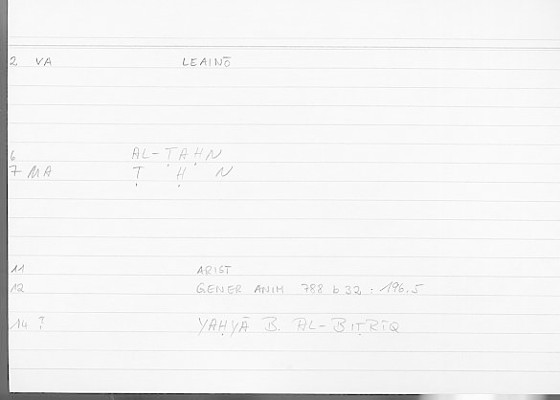 2 VA LEAINŌ
6 AL-ṬAḤN
7 MA Ṭ Ḥ N
11 ARIST
12 GENER ANIM 788 b 32 · 196,5
14 ? YAḤYĀ B. AL-BIṬRĪQ